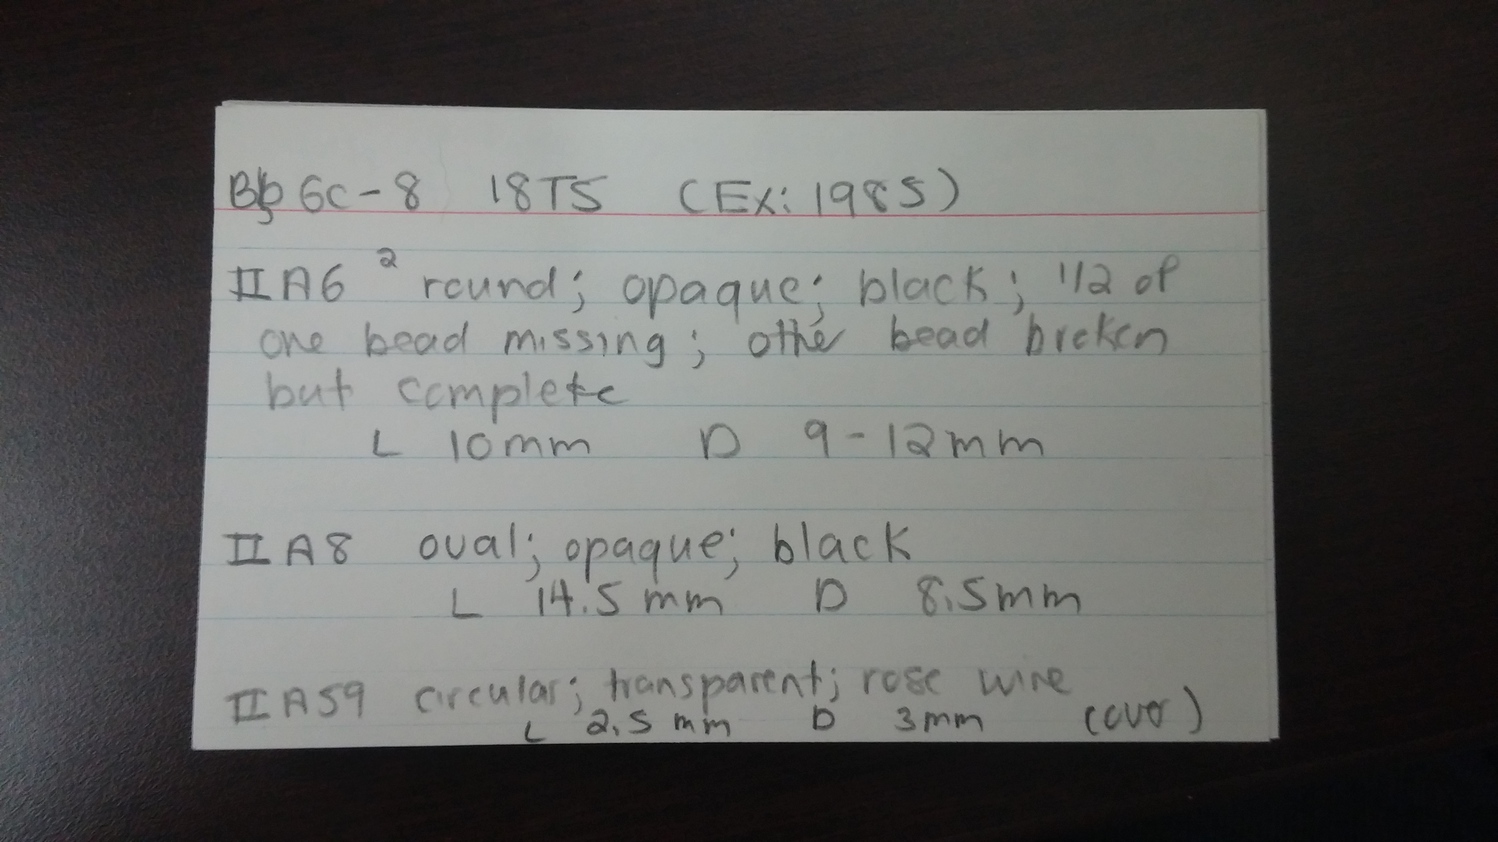 Bp 6c-8 18T5 (Ex: 1985)
II A6 2 round; opaque; black; 1/2 of
one bead missing; other bead broken
but complete
L 10mm D 9-12mm
II A8 oval; opaque; black
L 14.5mm D 8.5mm
II A59 circular; transparent; rose wine
L 2.5mm D 3mm (over)